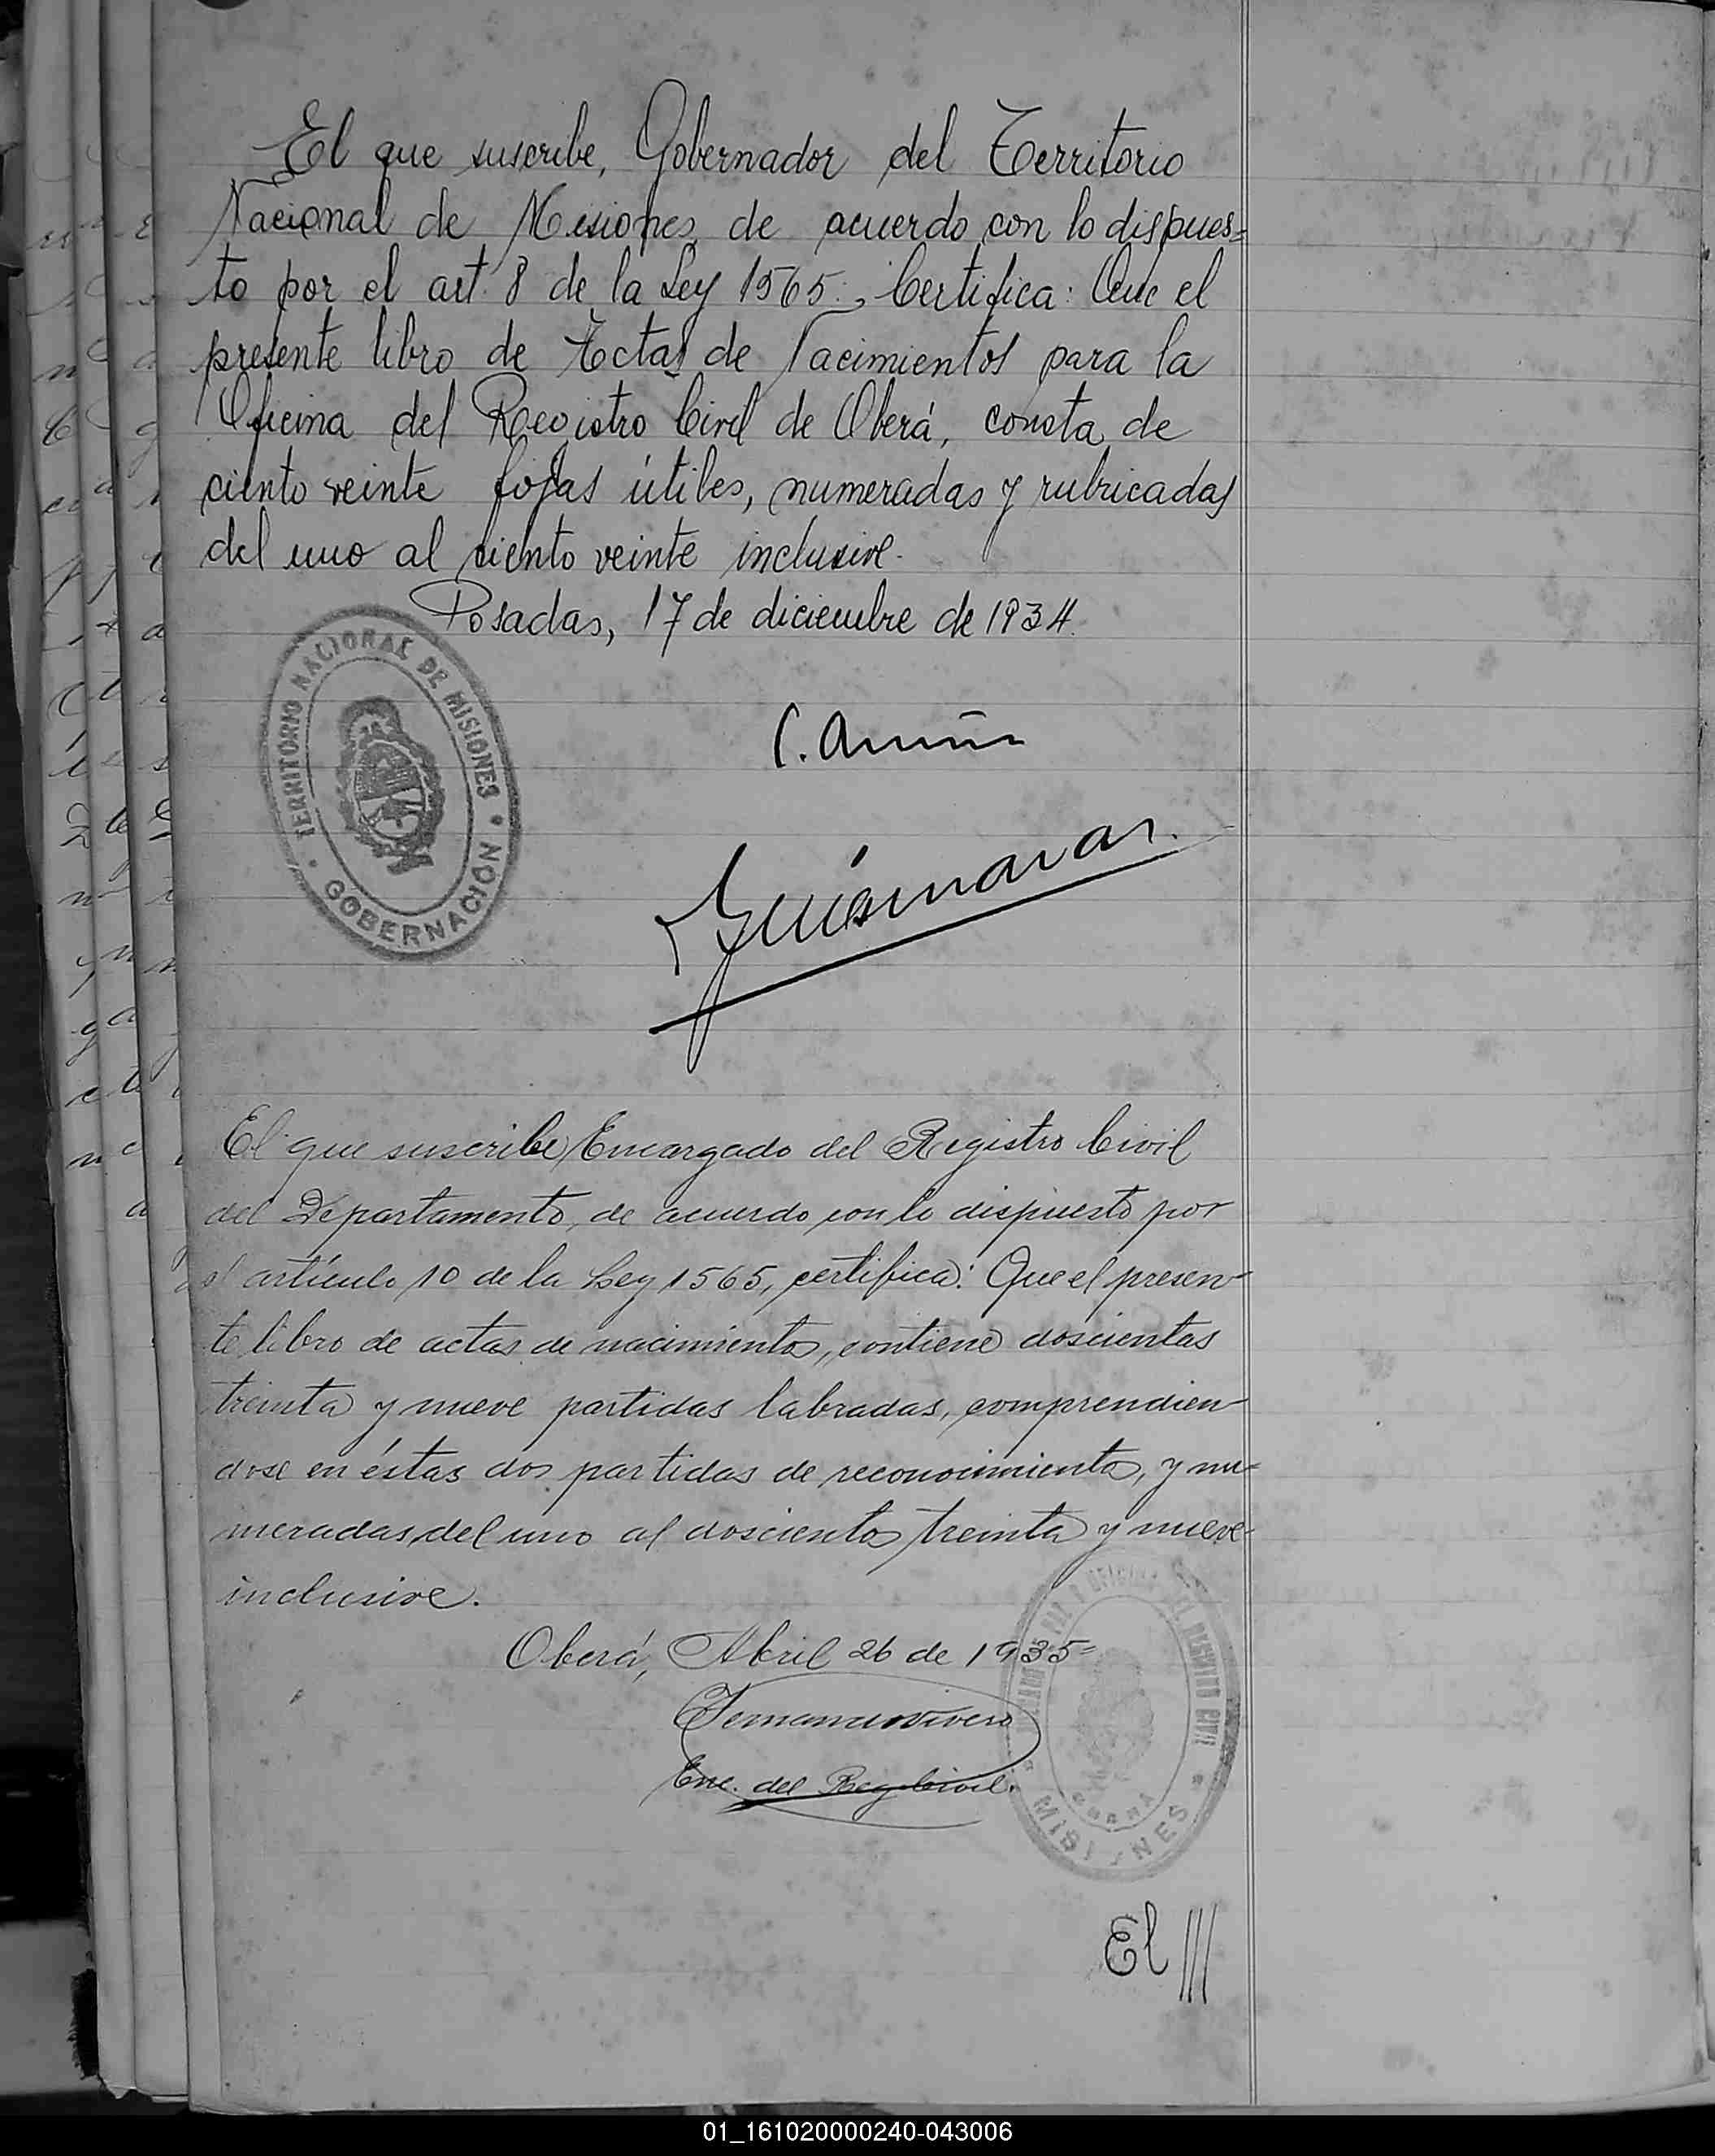 El que suscribe, Gobernador del Territorio
Nacional de Misiones, de acuerdo con lo dispues=
to por el art. 8 de la Ley 1565., Certifica: Que el
presente libro de Actas de Nacimientos para la
Oficina del Registro Civil de Oberá, consta de
ciento veinte fojas útiles, numeradas y rubricadas
del uno al ciento veinte inclusive.
Posadas, 17 de diciembre de 1934.
TERRITORIO NACIONAL DE MISIONES
GOBERNACIÓN
El que suscribe, Encargado del Registro Civil
del Departamento, de acuerdo con lo dispuesto por
el artículo 10 de la Ley 1565, certifica: Que el presen-
te libro de actas de nacimientos, contiene doscientas
treinta y nueve partidas labradas, comprendien-
dose en éstas dos partidas de reconocimientos, y nu-
meradas, del uno al doscientos treinta y nueve-
inclusive.
Oberá, Abril 26 de 1935=
Enc. del Reg. Civil.
MISIONES
El ///
01_161020000240-043006